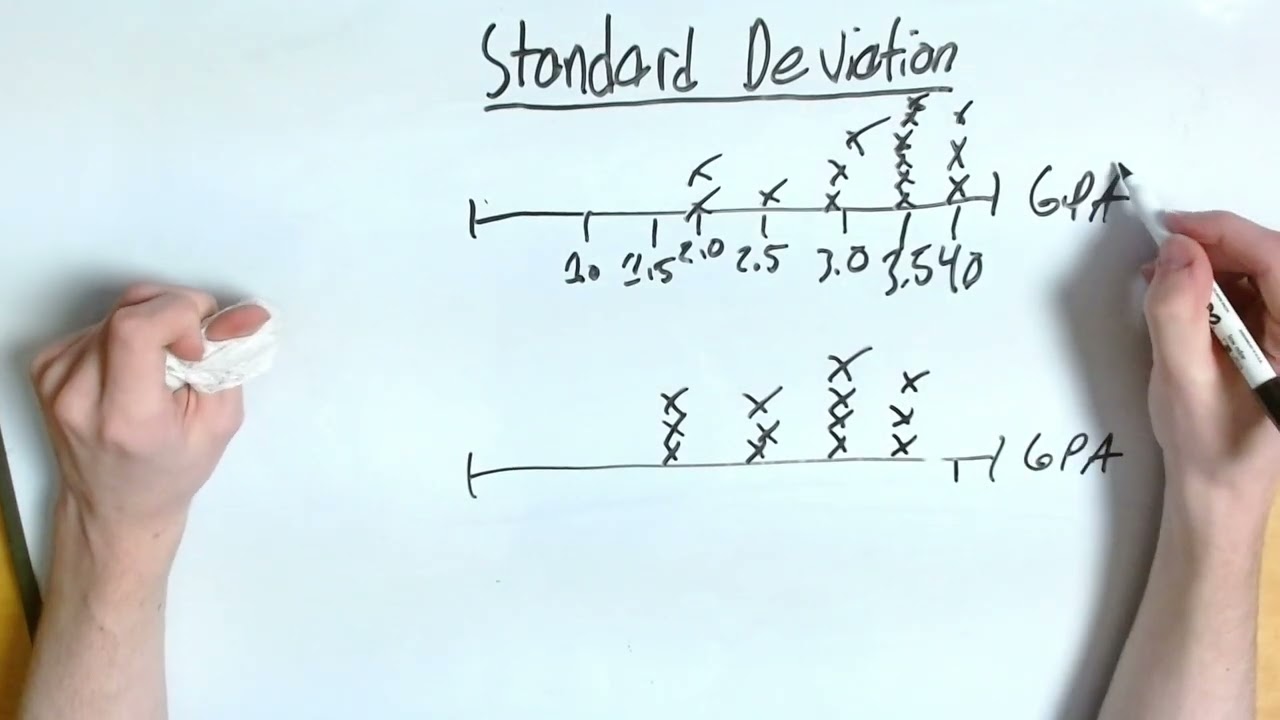 Standard Deviation
GPA
1.0 1.5 2.0 2.5 3.0 3.5 40
GPA